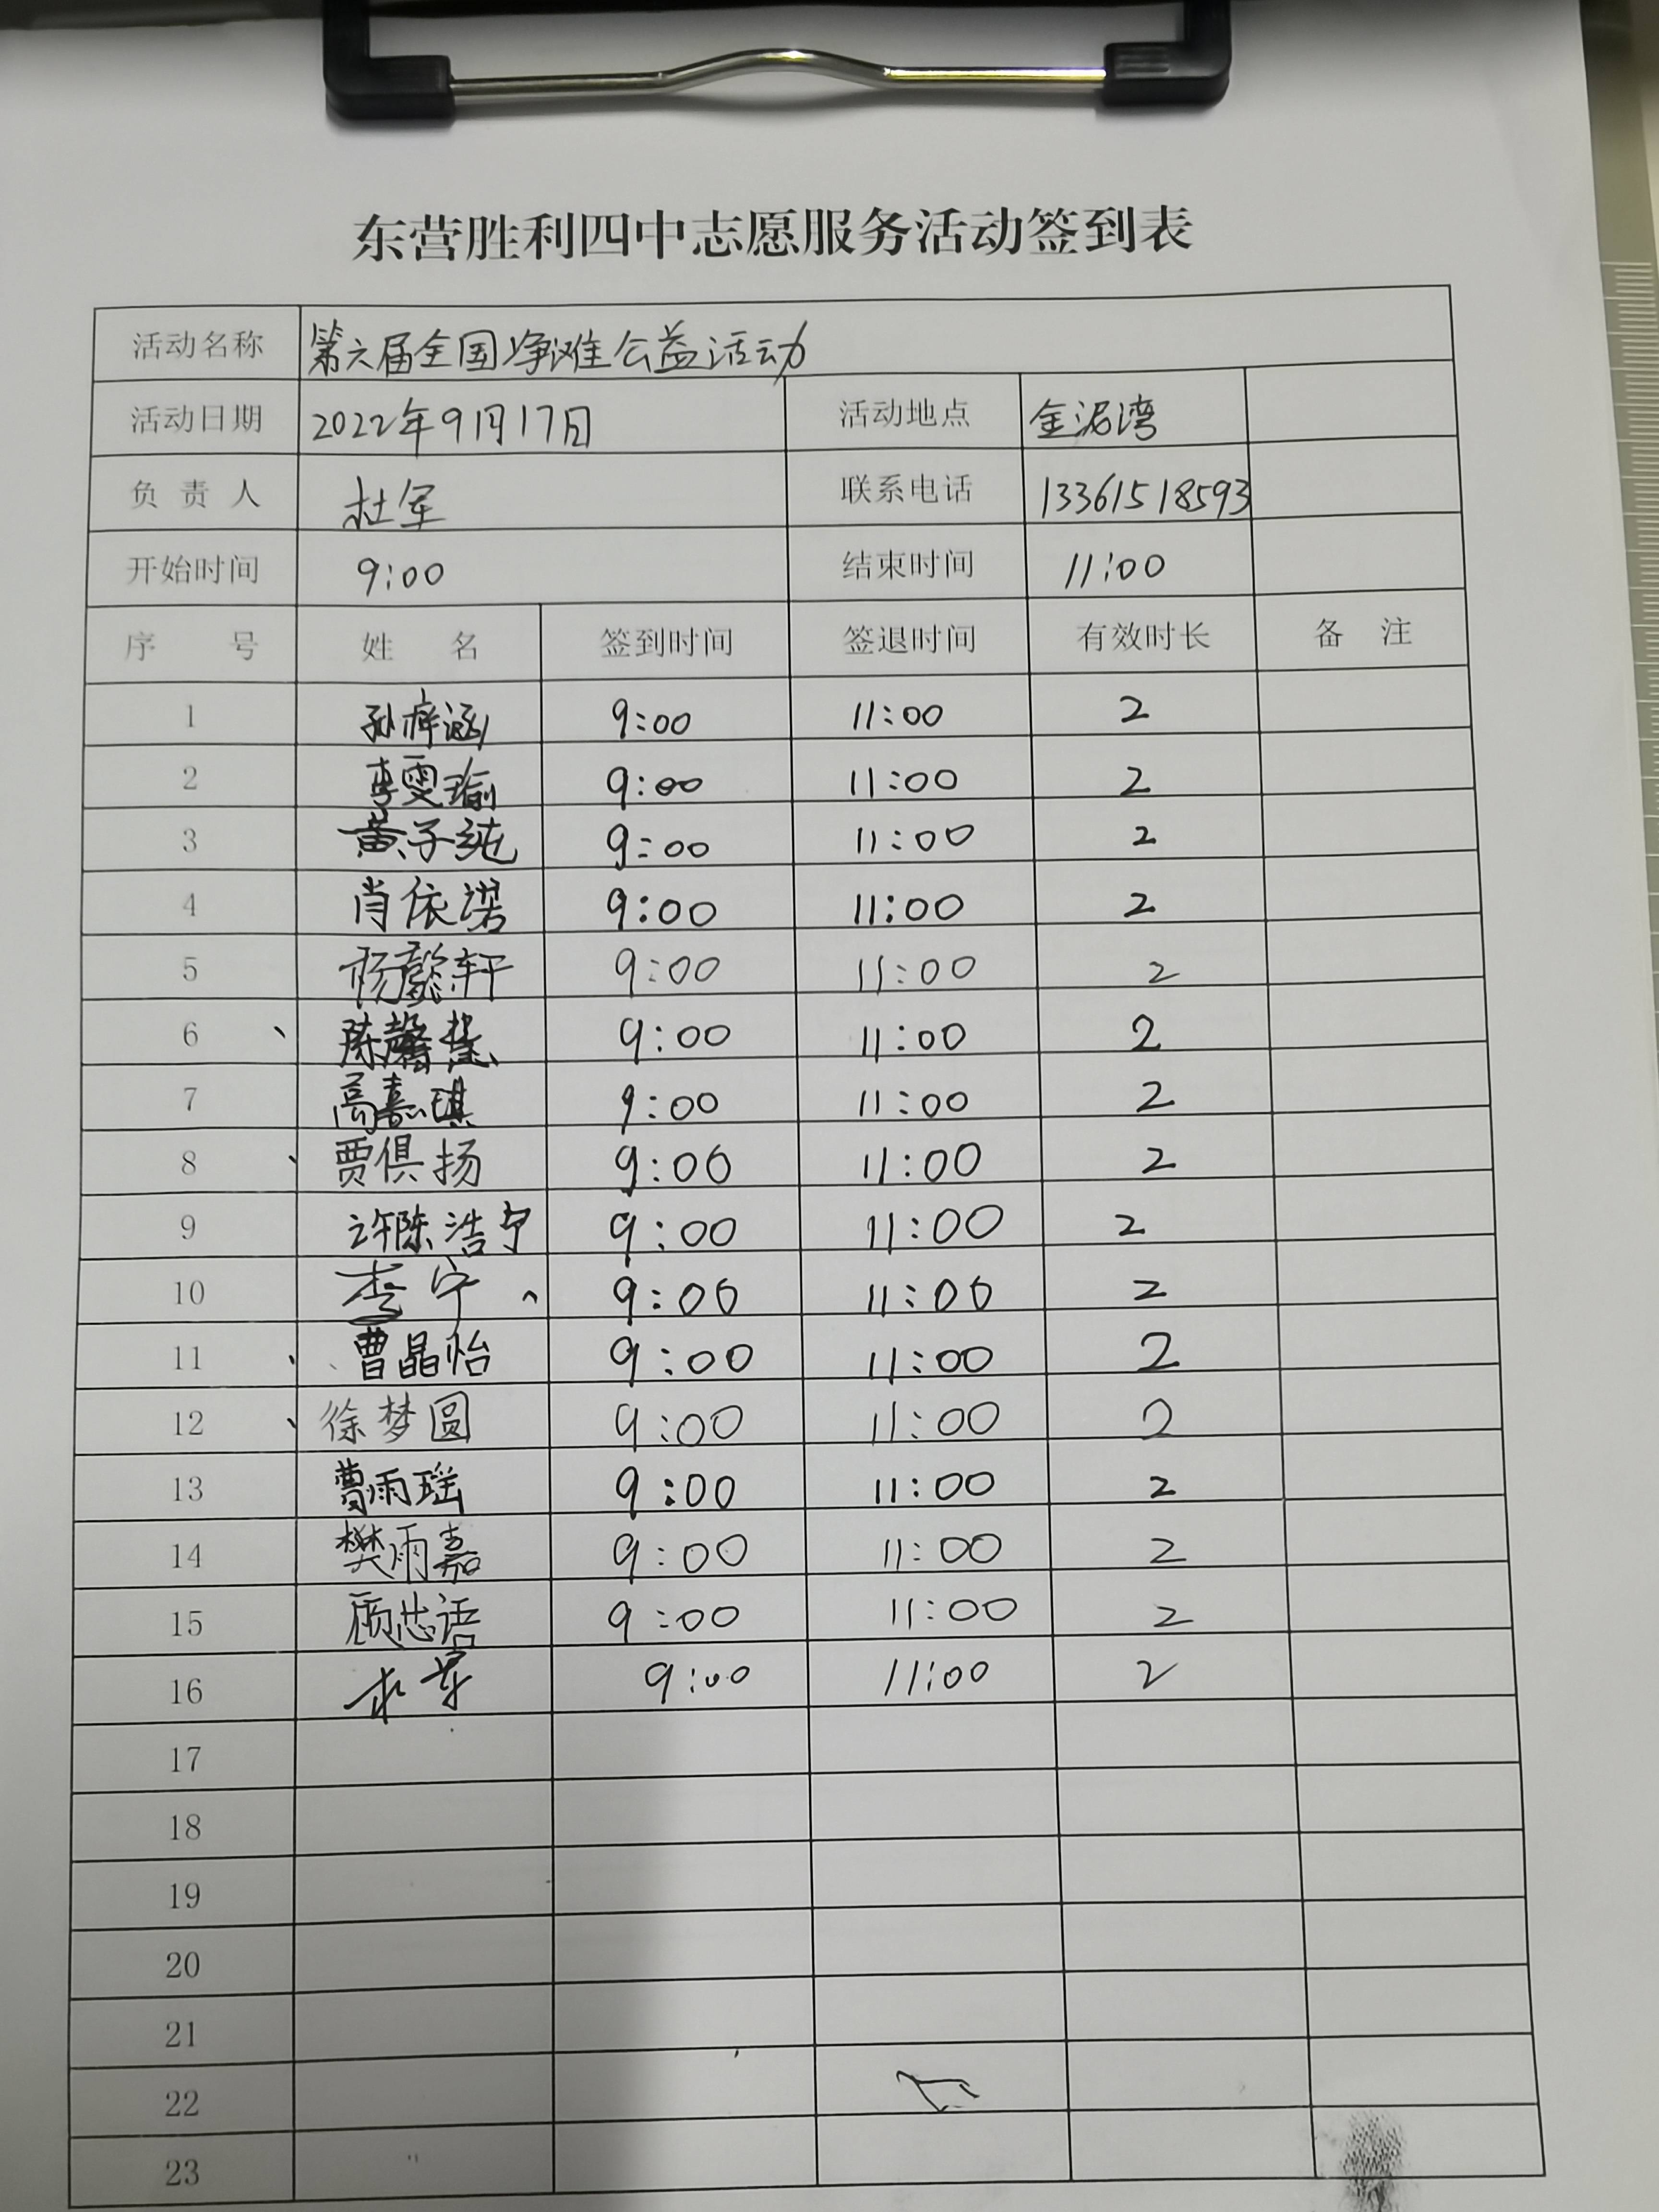 东营胜利四中志愿服务活动签到表
活动名称 第六届全国净滩公益活动
活动日期 2022年9月17日 活动地点 金泥湾
负责人 杜军 联系电话 13361518593
开始时间 9:00 结束时间 11:00
序号 姓名 签到时间 签退时间 有效时长 备注
1 孙梓涵 9:00 11:00 2
2 李雯瑜 9:00 11:00 2
3 黄子纯 9:00 11:00 2
4 肖依诺 9:00 11:00 2
5 杨懿轩 9:00 11:00 2
6 陈馨 9:00 11:00 2
7 高嘉琪 9:00 11:00 2
8 贾俱扬 9:00 11:00 2
9 许陈浩宁 9:00 11:00 2
10 李宁 9:00 11:00 2
11 曹晶怡 9:00 11:00 2
12 徐梦圆 9:00 11:00 2
13 曹雨瑶 9:00 11:00 2
14 樊雨嘉 9:00 11:00 2
15 顾芯语 9:00 11:00 2
16 9:00 11:00 2
17
18
19
20
21
22
23